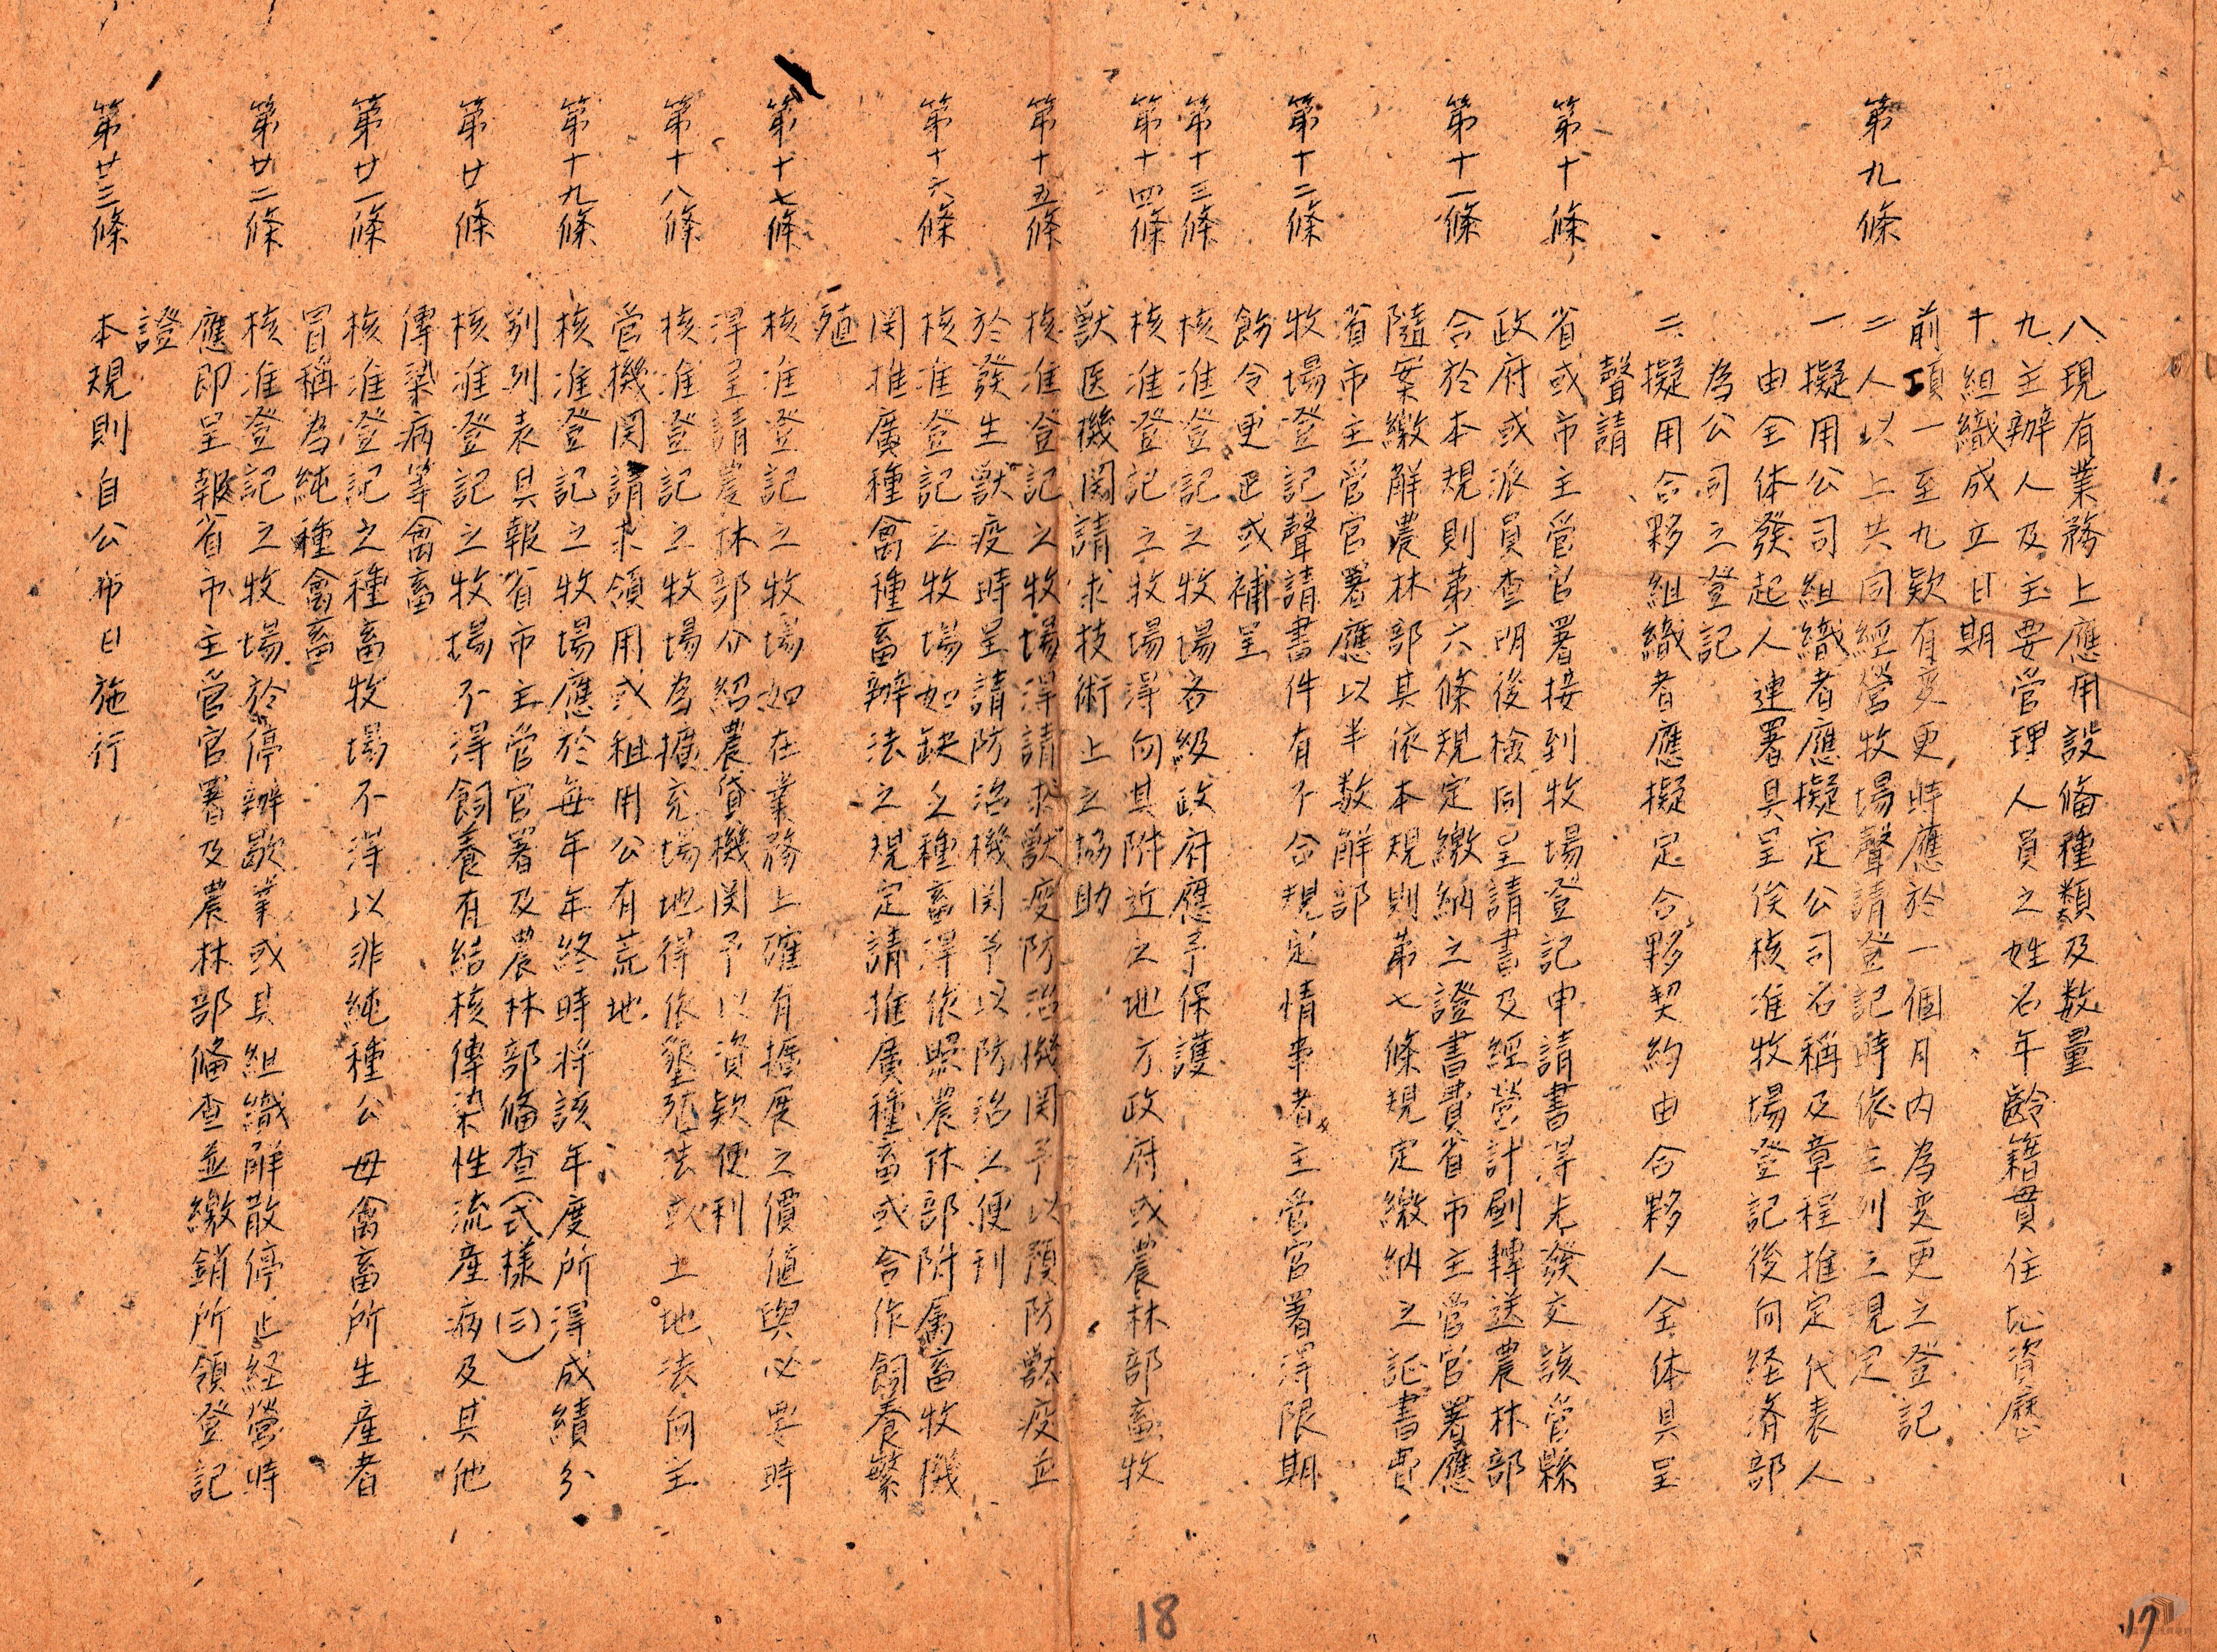 八、現有業務上應用設備種類及数量
九、主辦人及主要管理人員之姓名年齡籍貫住址資歷
十、組織成立日期
前項一至九欵有変更時應於一個月内為変更之登記
第九條 二人以上共同經營牧場聲請登記時依左列之規定
一、擬用公司組織者應擬定公司名稱及章程推定代表人
由全体發起人連署具呈俟核准牧場登記後向経済部
為公司之登記
二、擬用合夥組織者應擬定合夥契約由合夥人全体具呈
聲請
第十條 省或市主管官署接到牧場登記申請書得先發交該管縣
政府或派員查明後檢同呈請書及經營計劃轉送農林部
第十一條 合於本規則第六條規定繳納之證書費省市主管官署應
隨案繳解農林部其依本規則第七條規定繳納之証書費
省市主管官署應以半数解部
第十二條 牧場登記聲請書件有不合規定情事者主管官署得限期
飭令更正或補呈
第十三條 核准登記之牧場各級政府應予保護
第十四條 核准登記之牧場得向其附近之地方政府或農林部畜牧
獸医機関請求技術上之協助
第十五條 核准登記之牧場得請求獸疫防治機関予以預防獸疫並
於發生獸疫時呈請防治機関予以防治之便利
第十六條 核准登記之牧場如缺乏種畜得依照農林部附属畜牧機
関推廣種禽種畜辦法之規定請推廣種畜或合作飼養繁
殖
第十七條 核准登記之牧場如在業務上確有擴展之價值與必要時
得呈請農林部介紹農貸機関予以資欵便利
第十八條 核准登記之牧場為擴充場地得依墾殖法或土地法向主
管機関請求領用或租用公有荒地
第十九條 核准登記之牧場應於每年年終時将該年度所得成績分
別列表具報省市主管官署及農林部備查(式樣(三))
第廿條 核准登記之牧場不得飼養有結核傳染性流産病及其他
傳染病等禽畜
第廿一條 核准登記之種畜牧場不得以非純種公母禽畜所生産者
冒稱為純種禽畜
第廿二條 核准登記之牧場於停辦歇業或其組織解散停止経營時
應即呈報省市主管官署及農林部備查並繳銷所領登記
證
第廿三條 本規則自公布日施行
18
17